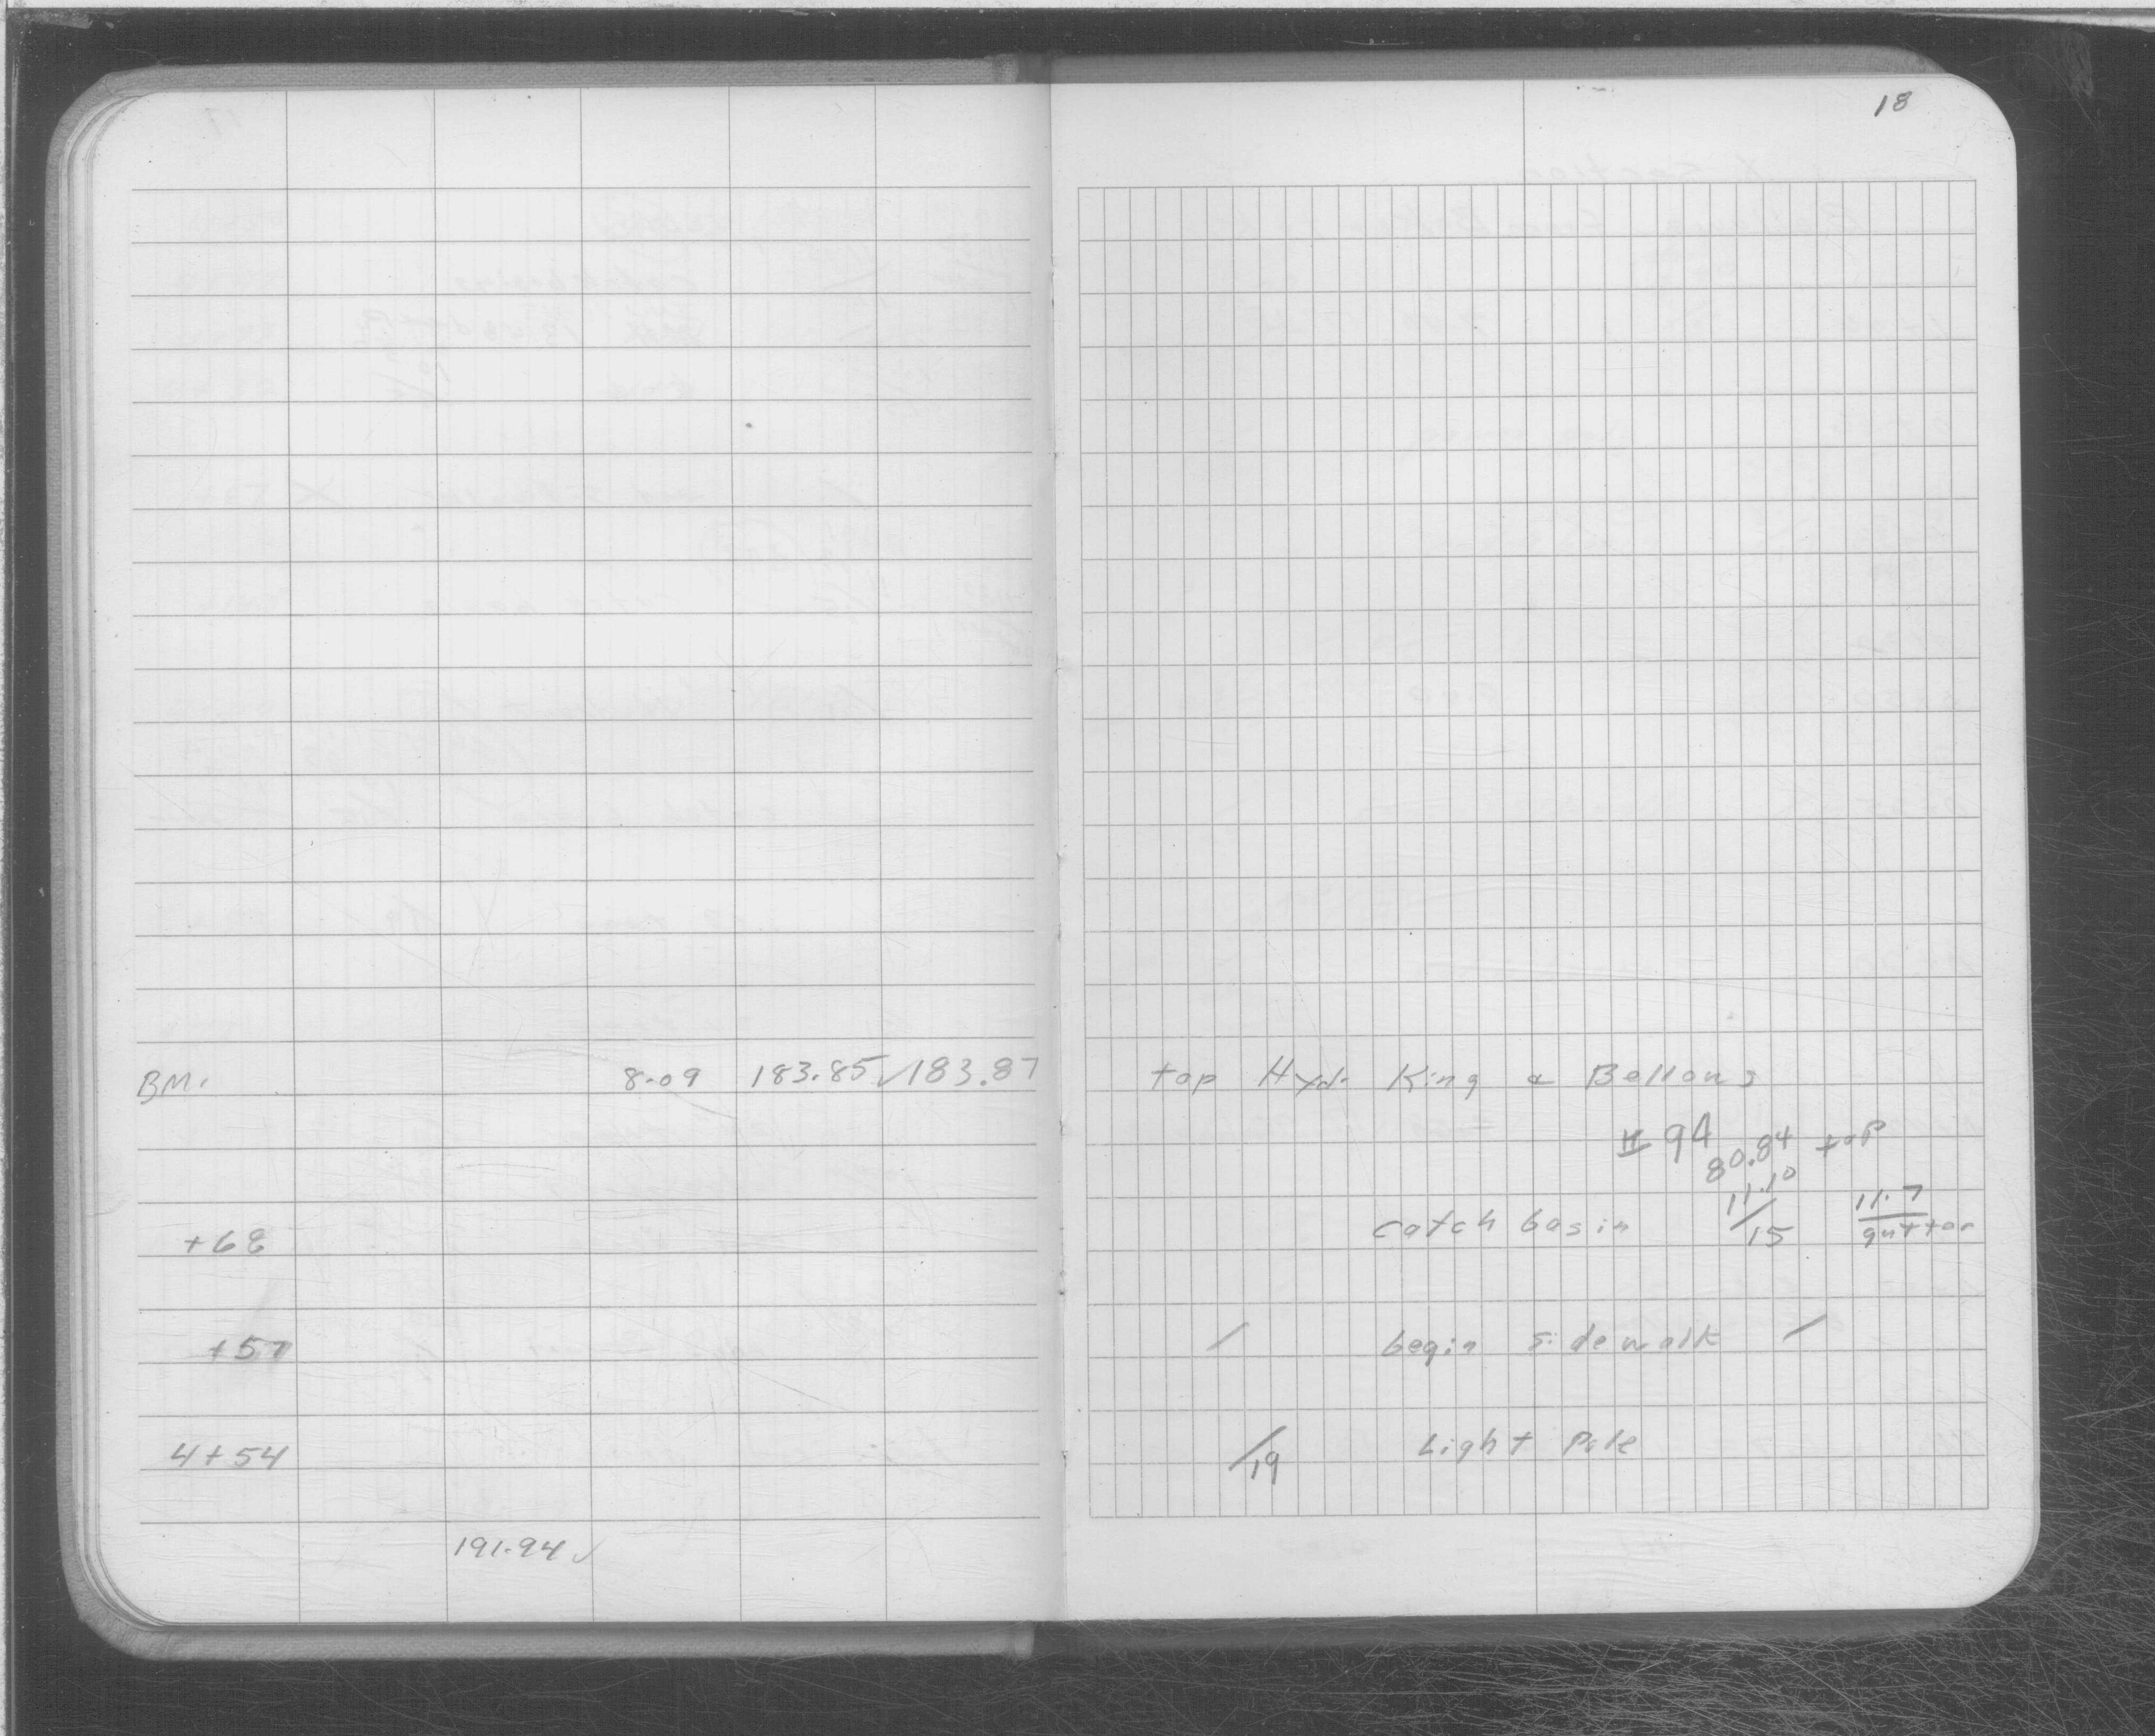 18
BM. 8.09 183.85 ✓ 183.87 top Hydr King & Bellows
# 94
80.84 top
+68 catch basin 11.10/15 11.7/gutter
+57 / begin sidewalk /
4+54 /19 Light Pole
191.94 ✓